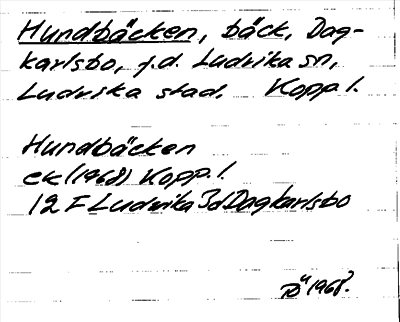 Hundbäcken, bäck, Dag-
karlsbo, f.d. Ludvika sn,
Ludvika stad. Kopp. l.
Hundbäcken
ek (1968) Kopp. l.
12 F Ludvika 3d Dagkarlsbo
1968.